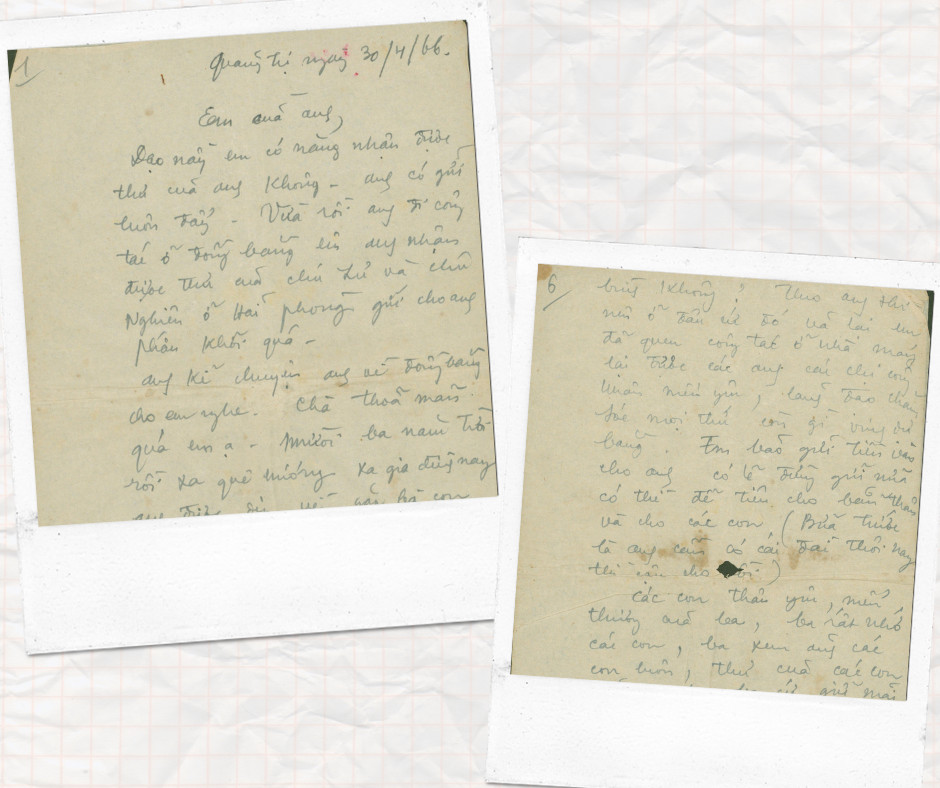 1
Quảng Trị ngày 30/4/66.
Em của anh,
Dạo này em có năng nhận được
thư của anh không - anh có gửi
luôn đấy - Vừa rồi anh đi công
tác ở đồng bằng lên anh nhận
được thư của chú Lử và chú
Nghiên ở Hải phòng gửi cho anh
phấn khởi quá -
anh kể chuyện anh về đồng bằng
cho em nghe. Chà thoả mãn
quá em ạ - mười ba năm trời
rồi xa quê hương xa gia đình nay
anh được
6
không? Theo anh thì
nên ở đâu cứ ở đó vả lại em
đã quen công tác ở nhà máy
lại được các anh các chị công
nhân mến yêu, lãnh đạo chăm
sóc mọi thứ, còn gì vui
bằng. Em bảo gửi tiền vào
cho anh có lẽ đừng gửi nữa
có thì để tiền cho bản thân
và cho các con (Bữa trước
là anh cần có cái đài thôi nay
thì cho rồi)
các con thân yêu, mến
thương của ba, ba rất nhớ
các con, ba xem ảnh các
con luôn, thư của các con
giữ mãi